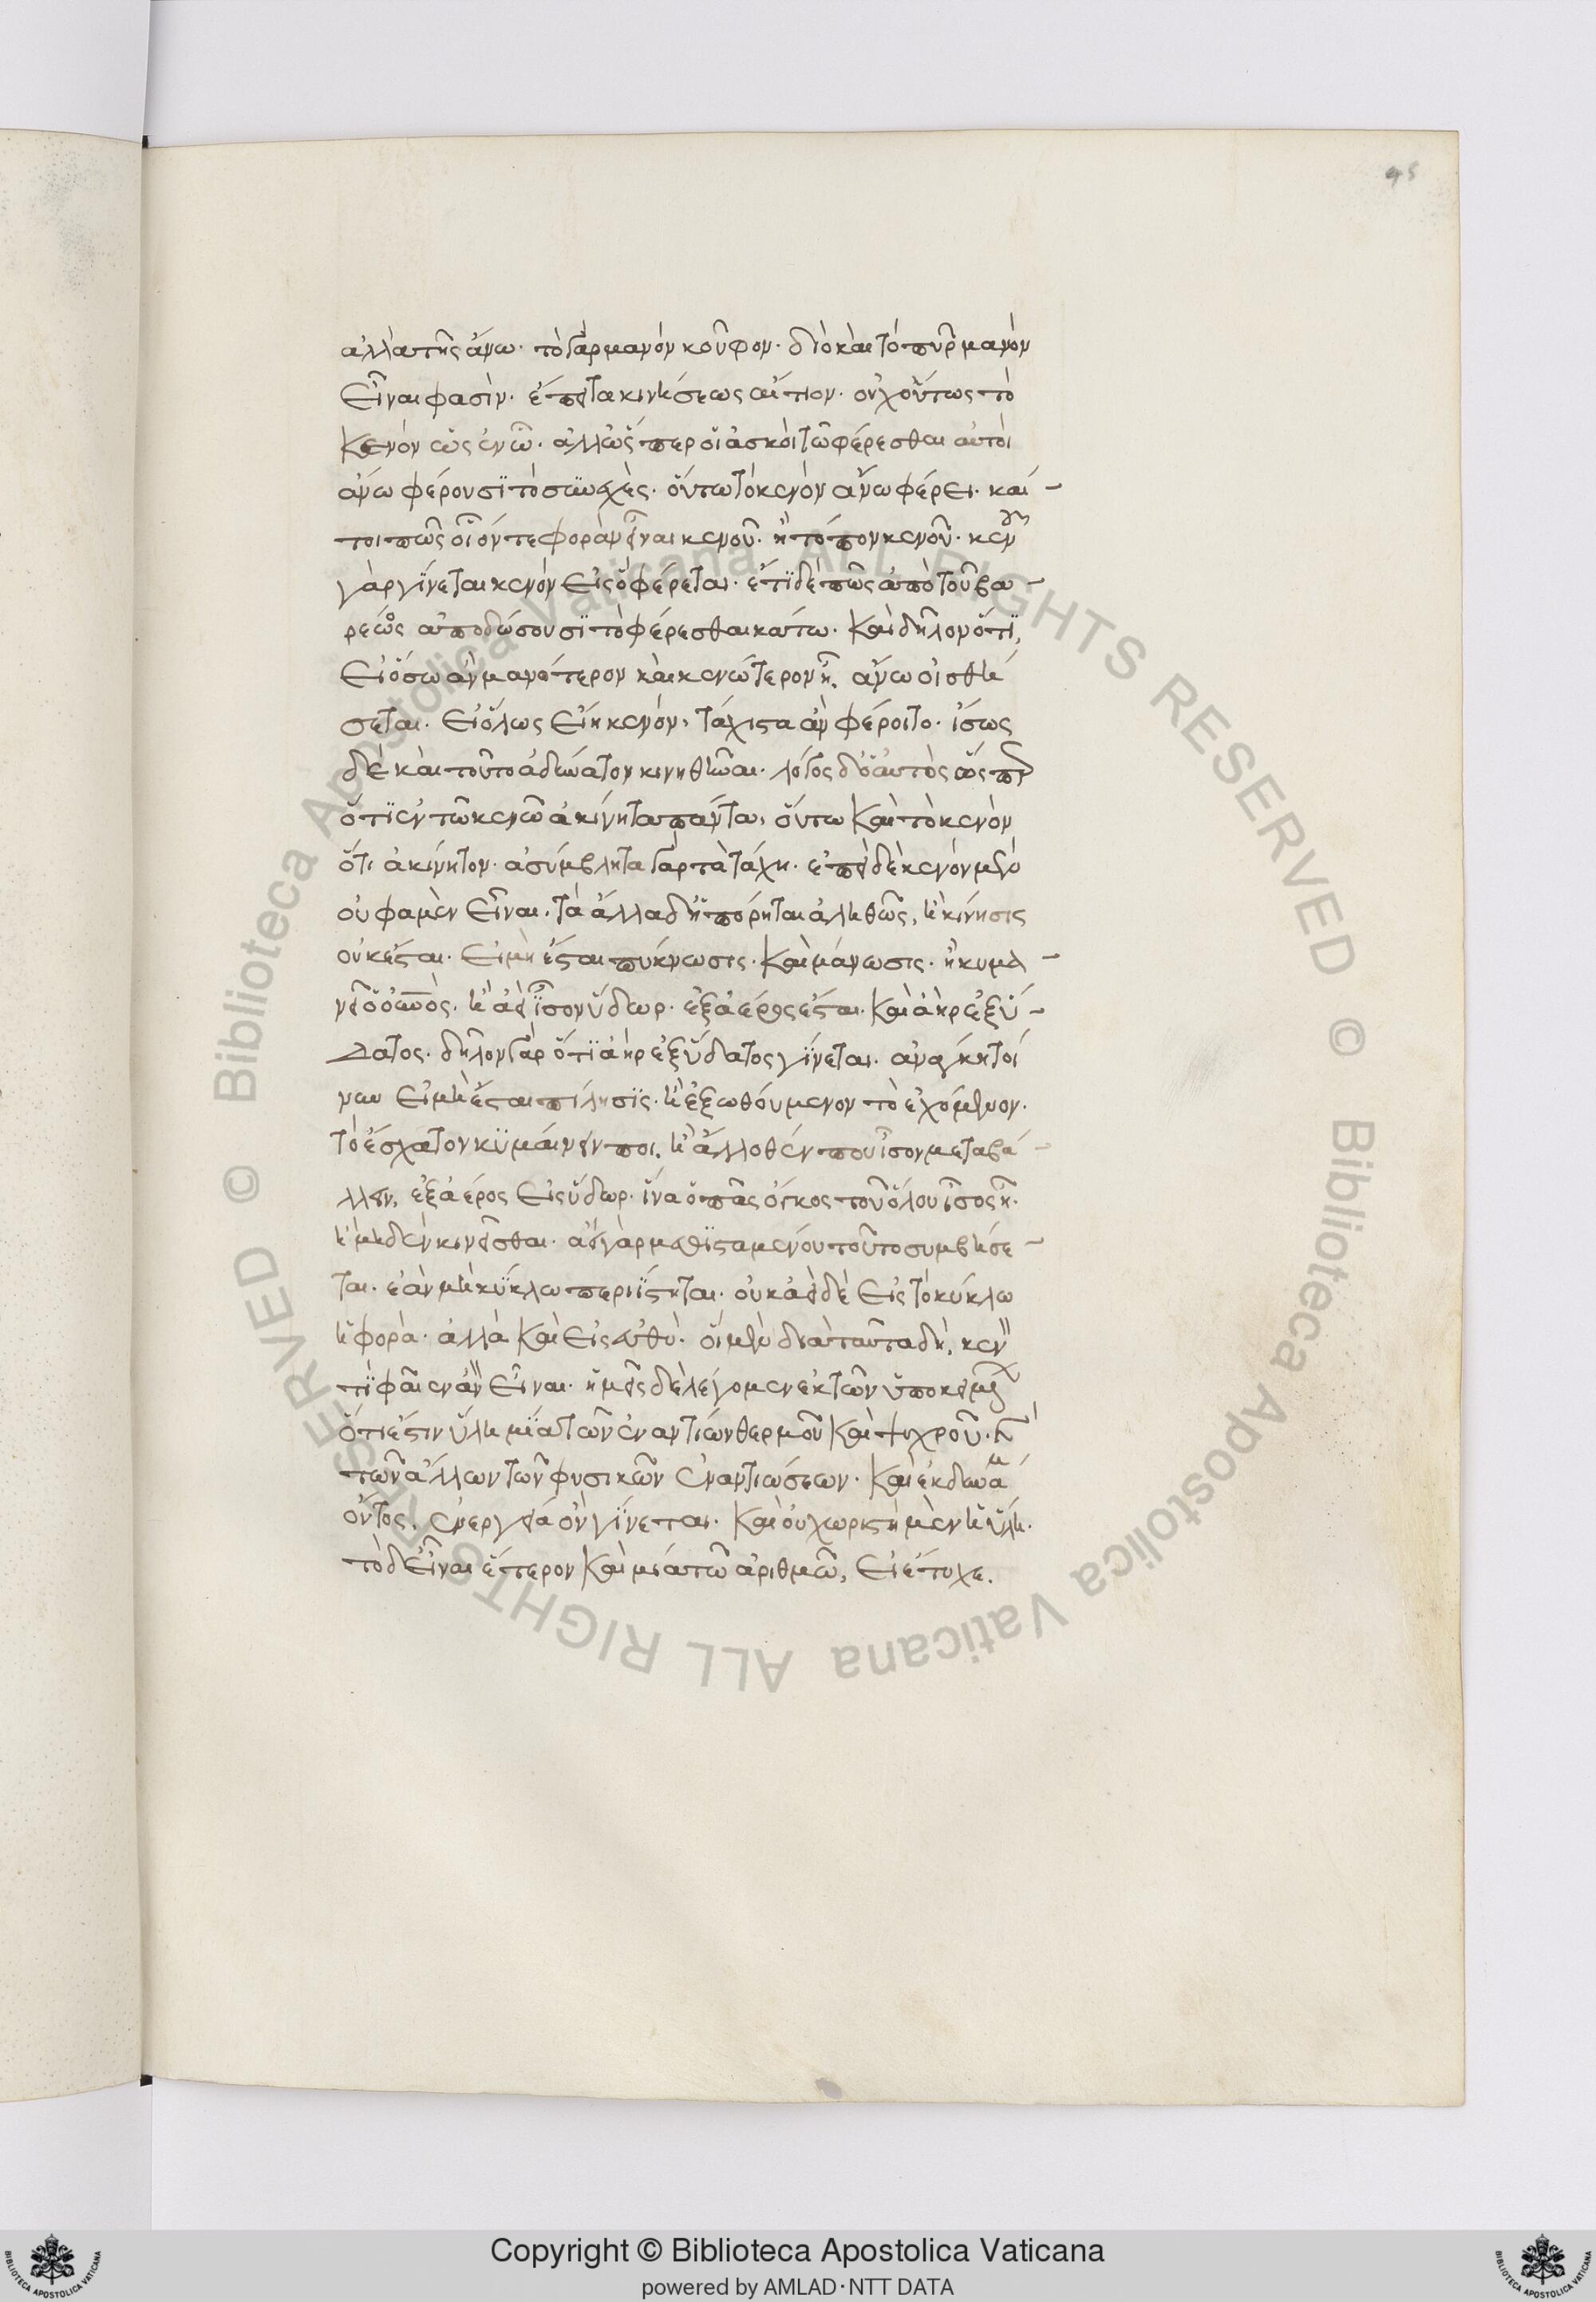 95
ἀλλὰ τῆς ἄνω. τὸ γὰρ μανὸν κοῦφον. διὸ καὶ τὸ πῦρ μανὸν
εἶναι φασὶν. ἔπειτα κινήσεως αἴτιον. οὐχ οὕτως τὸ
κενὸν ὡς ἐν ᾧ. ἀλλ' ὥσπερ οἱ ἀσκοὶ τῷ φέρεσθαι αὐτοὶ
ἄνω φέρουσι τὸ συνεχὲς. οὕτω τὸ κενὸν ἄνω φέρει. καί-
τοι πῶς οἷόν τε φορὰν εἶναι κενοῦ. ἢ τόπον κενοῦ. κενοῦ
γὰρ γίνεται κενὸν εἰς ὃ φέρεται. ἔτι δὲ πῶς ἀπὸ τοῦ βα-
ρέως ἀποδώσουσι τὸ φέρεσθαι κάτω. καὶ δῆλον ὅτι,
εἰ ὅσω ἂν μανότερον καὶ κενώτερον ᾖ. ἄνω οἰσθή
σεται. εἰ ὅλως εἴη κενὸν, τάχιστα ἂν φέροιτο. ἴσως
δὲ καὶ τοῦτο ἀδύνατον κινηθῆναι. λόγος δ' ὁ αὐτὸς ὥσπερ
ὅτι ἐν τῷ κενῷ ἀκίνητα πάντα, οὕτω καὶ τὸ κενὸν
ὅτι ἀκίνητον. ἀσύμβλητα γὰρ τὰ τάχη. ἐπεὶ δὲ κενὸν μὲν
οὔ φαμεν εἶναι. τὰ ἄλλα δ' ἠπόρηται ἀληθῶς, ἢ κίνησις
οὐκ ἔσται. εἰ μὴ ἔσται πύκνωσις. καὶ μάνωσις. ἢ κυμα-
νεῖ ὁ οὐνος. ἢ ἀεὶ ἴσον ὕδωρ. ἐξ ἀέρος ἔσται. καὶ ἀὴρ ἐξ ὕ-
δατος. δῆλον γὰρ ὅτι ἀὴρ ἐξ ὕδατος γίνεται. ἀνάγκη τοί
νυν εἰ μὴ ἔσται πίλησις. ἢ ἐξωθούμενον τὸ ἐχόμενον.
τὸ ἔσχατον κυμαίνειν ποι. ἢ ἄλλοθέν που ἴσον μεταβά-
λλειν, ἐξ ἀέρος εἰς ὕδωρ. ἵνα ὁ πᾶς ὄγκος τοῦ ὅλου ἴσος ᾖ.
ἢ μηδὲν κινεῖσθαι. ἀεὶ γὰρ μεθισταμένου τοῦτο συμβήσε-
ται. ἐὰν μὴ κύκλω περιίστηται. οὐκ ἀεὶ δὲ εἰς τὸ κύκλω
ἡ φορὰ. ἀλλὰ καὶ εἰς εὐθὺ. οἱ μὲν διὰ ταῦτα δὴ, κενόν
τι φαῖεν ἂν εἶναι. ἡμεῖς δὲ λέγομεν ἐκ τῶν ὑποκειμένων
ὅτι ἐστιν ὕλη μία τῶν ἐναντίων θερμοῦ καὶ ψυχροῦ. καὶ
τῶν ἄλλων τῶν φυσικῶν ἐναντιώσεων. καὶ ἐκ δυνάμει
ὄντος, ἐνεργεία ὂν γίνεται. καὶ οὐ χωριστὴ μὲν ἡ ὕλη.
τὸ δ' εἶναι ἕτερον καὶ μία τῷ ἀριθμῷ, εἰ ἔτυχε.
Copyright © Biblioteca Apostolica Vaticana
powered by AMLAD·NTT DATA